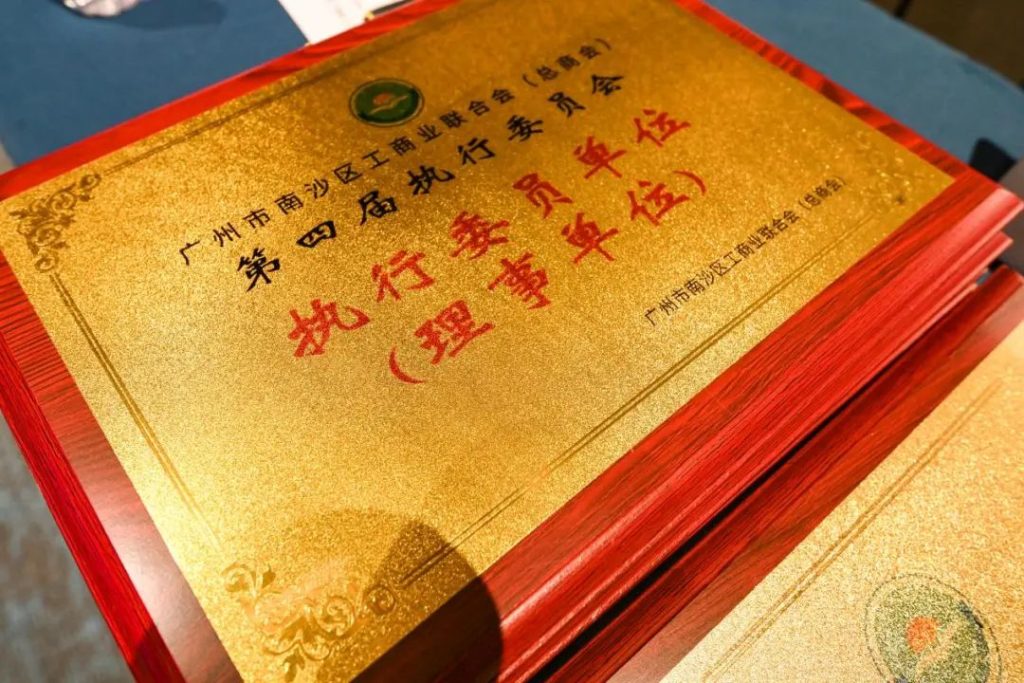 广州市南沙区工商业联合会（总商会）
第四届执行委员会
执行委员单位
（理事单位）
广州市南沙区工商业联合会（总商会）